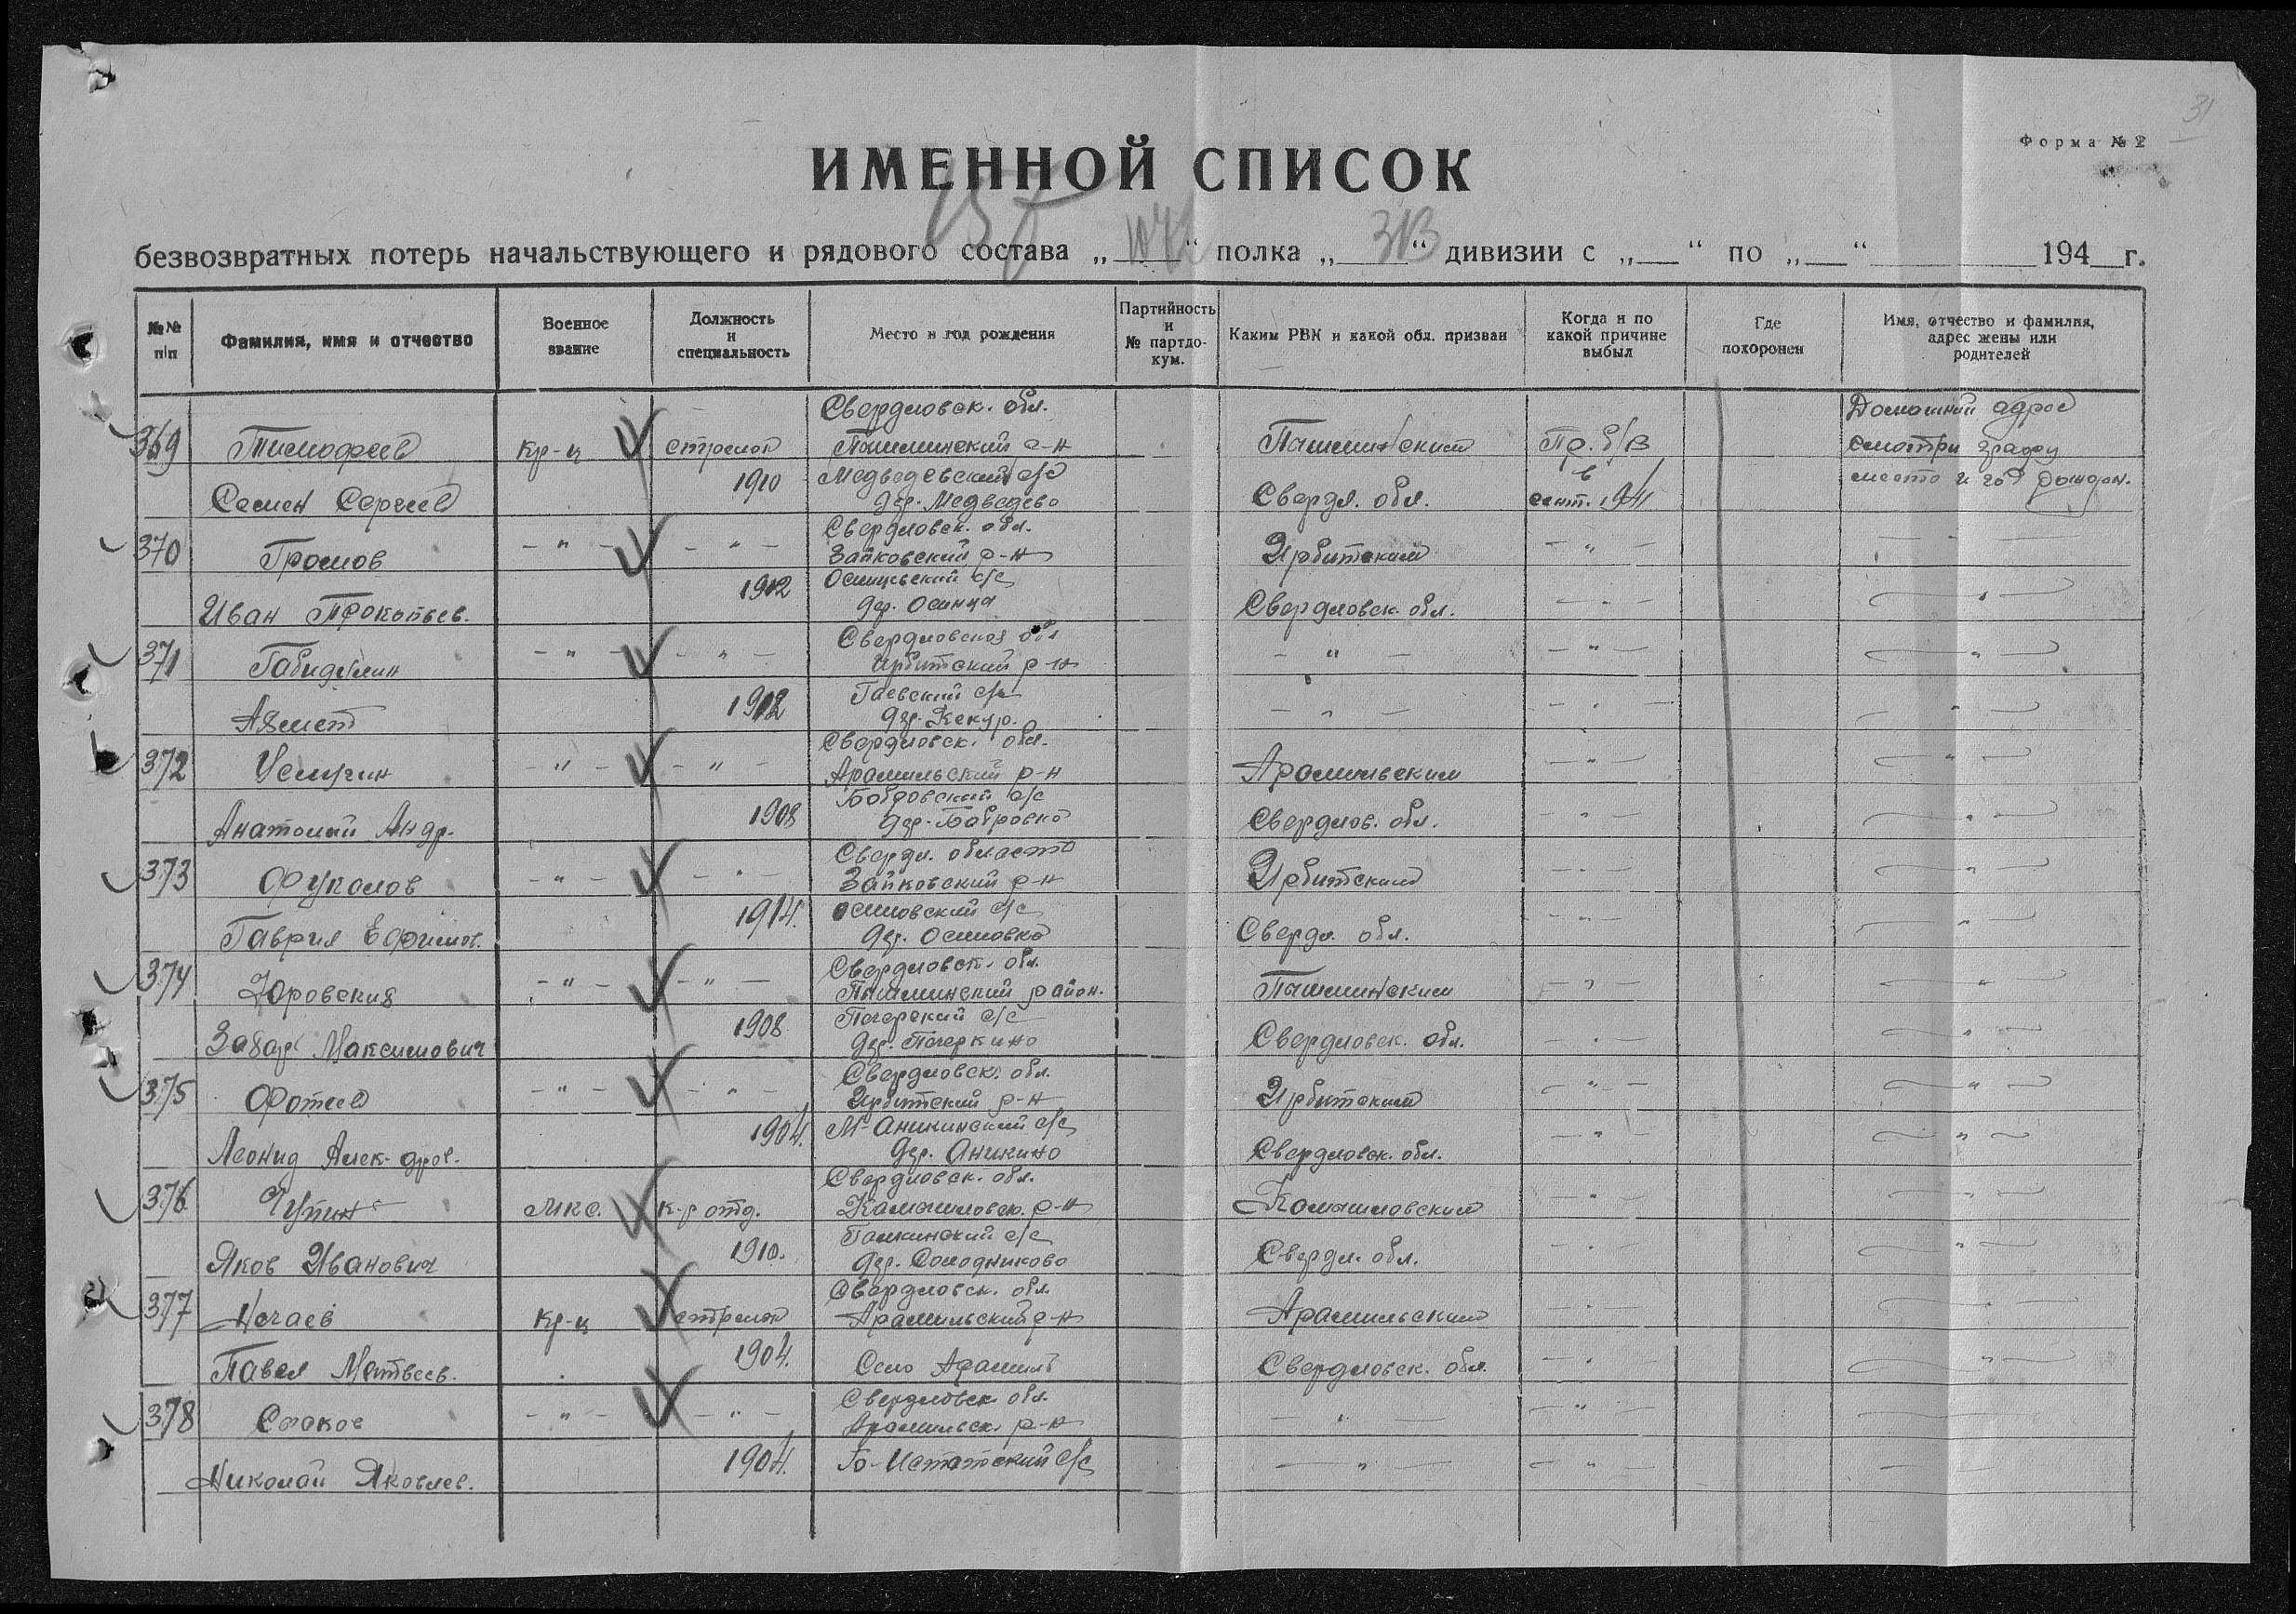 31
Форма № 2
ИМЕННОЙ СПИСОК
безвозвратных потерь начальствующего и рядового состава „1072“ полка „313“ дивизии с „__“ по „__“ ______ 194__г.
№№ п/п
Фамилия, имя и отчество
Военное звание
Должность и специальность
Место и год рождения
Партийность и № партдокум.
Каким РВК и какой обл. призван
Когда и по какой причине выбыл
Где похоронен
Имя, отчество и фамилия, адрес жены или родителей
Свердловск. обл. Домашний адрес
369 Тимофеев кр-ц стрелок Пышминский р-н Пышминским Пр. б/в смотри графу
1910 Медведевский с/с в место и год рожден.
Семен Сергеев дер. Медведево Свердл. обл. сент. 1941
Свердловск. обл.
370 Громов -"- -"- Зайковский р-н Ирбитским -"-
1912 с/с
Иван Прокопьев. дер. Осинца Свердловск. обл. -"- -"-
Свердловская обл
371 Габидулин -"- -"- Ирбитский р-н -"- -"- -"-
1912 Гаевский с/с
Ахмет дер. Кекур. -"- -"- -"-
Свердловск. обл.
372 -"- -"- Арамильский р-н Арамильским -"- -"-
1908 Бобровский с/с
Анатолий Андр. дер. Бобровка Свердлов. обл. -"- -"-
Свердл. область
373 Фуколов -"- -"- Зайковский р-н Ирбитским -"- -"-
1914. Осиновский с/с
Гаврил Ефимов. дер. Осиновка Свердл. обл. -"- -"-
Свердловск. обл.
374 Юровских -"- -"- Пышминский район. Пышминским -"- -"-
1908 Печеркский с/с
Захар Максимович дер. Печеркино Свердловск. обл. -"- -"-
Свердловск. обл.
375 Фотеев -"- -"- Ирбитский р-н Ирбитским -"- -"-
1904. М-Аникинский с/с
Леонид Алек-дров. дер. Аникино Свердловск. обл. -"- -"-
Свердловск. обл.
376 Чупин мкс. к-р отд. Камышловск. р-н Камышловским -"- -"-
1910. с/с
Яков Иванович дер. Солодниково Свердл. обл. -"- -"-
Свердловск. обл.
377 Нечаев кр-ц стрелок Арамильский р-н Арамильским -"- -"-
1904.
Павел Матвеев. Село Арамиль Свердловск. обл. -"- -"-
Свердловск обл.
378 -"- -"- Арамильск. р-н -"- -"-
1904. Б-Истокский с/с
Николай Яковлев. -"- -"-